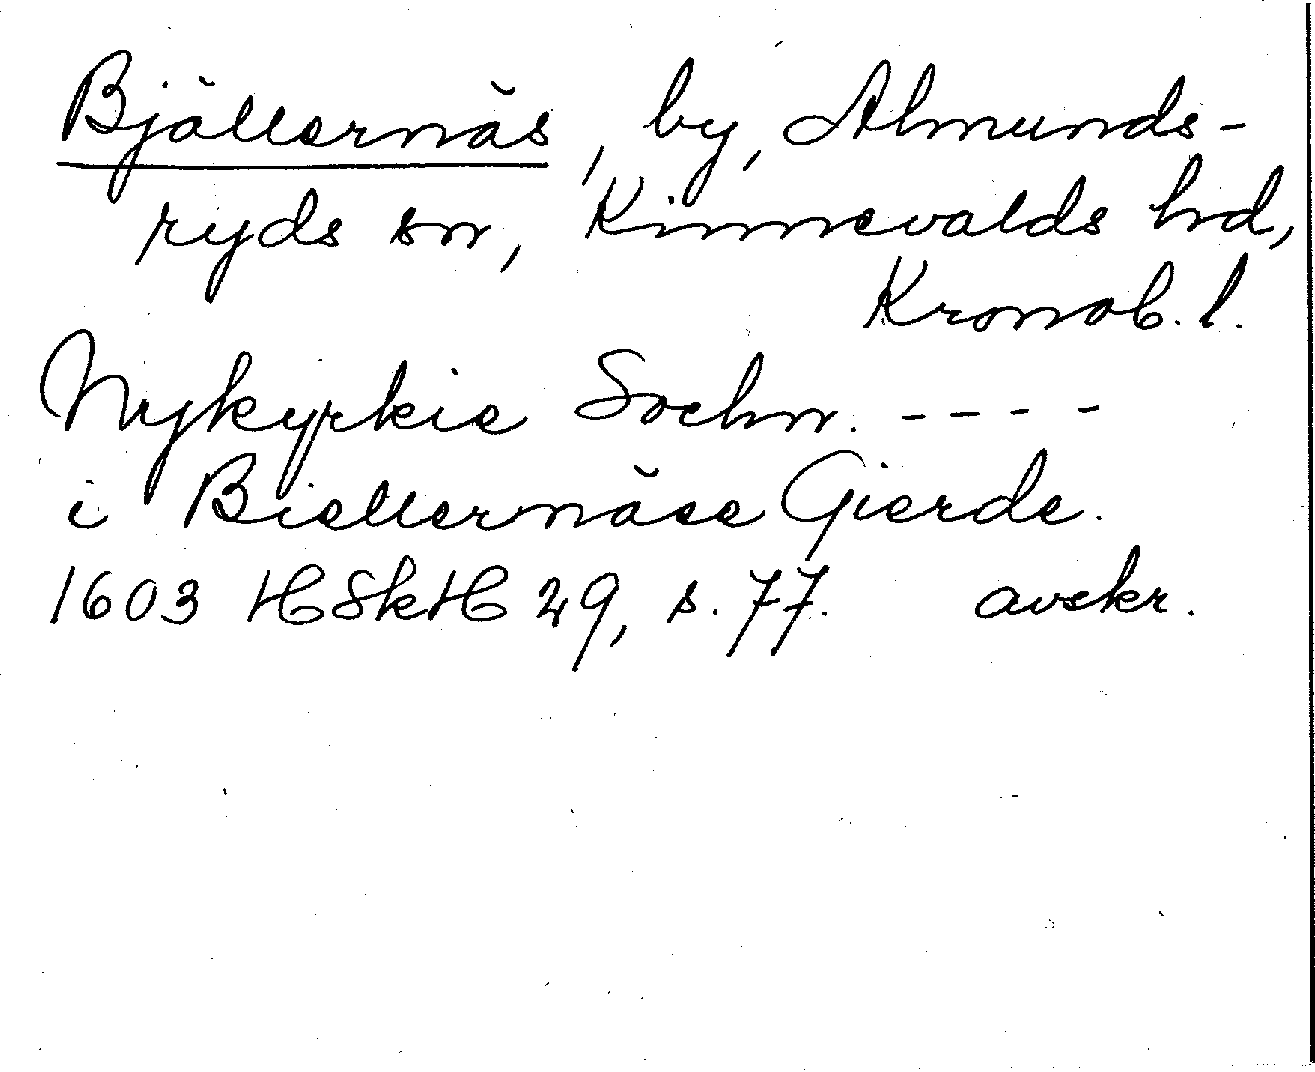 Bjällernäs, by, Almunds-
ryds sn, Kinnevalds hd,
Kronob. l.
Nykyrkie Sochn. ----
i Biellernäse Gierde.
1603 HSkH 29, s. 77. avskr.